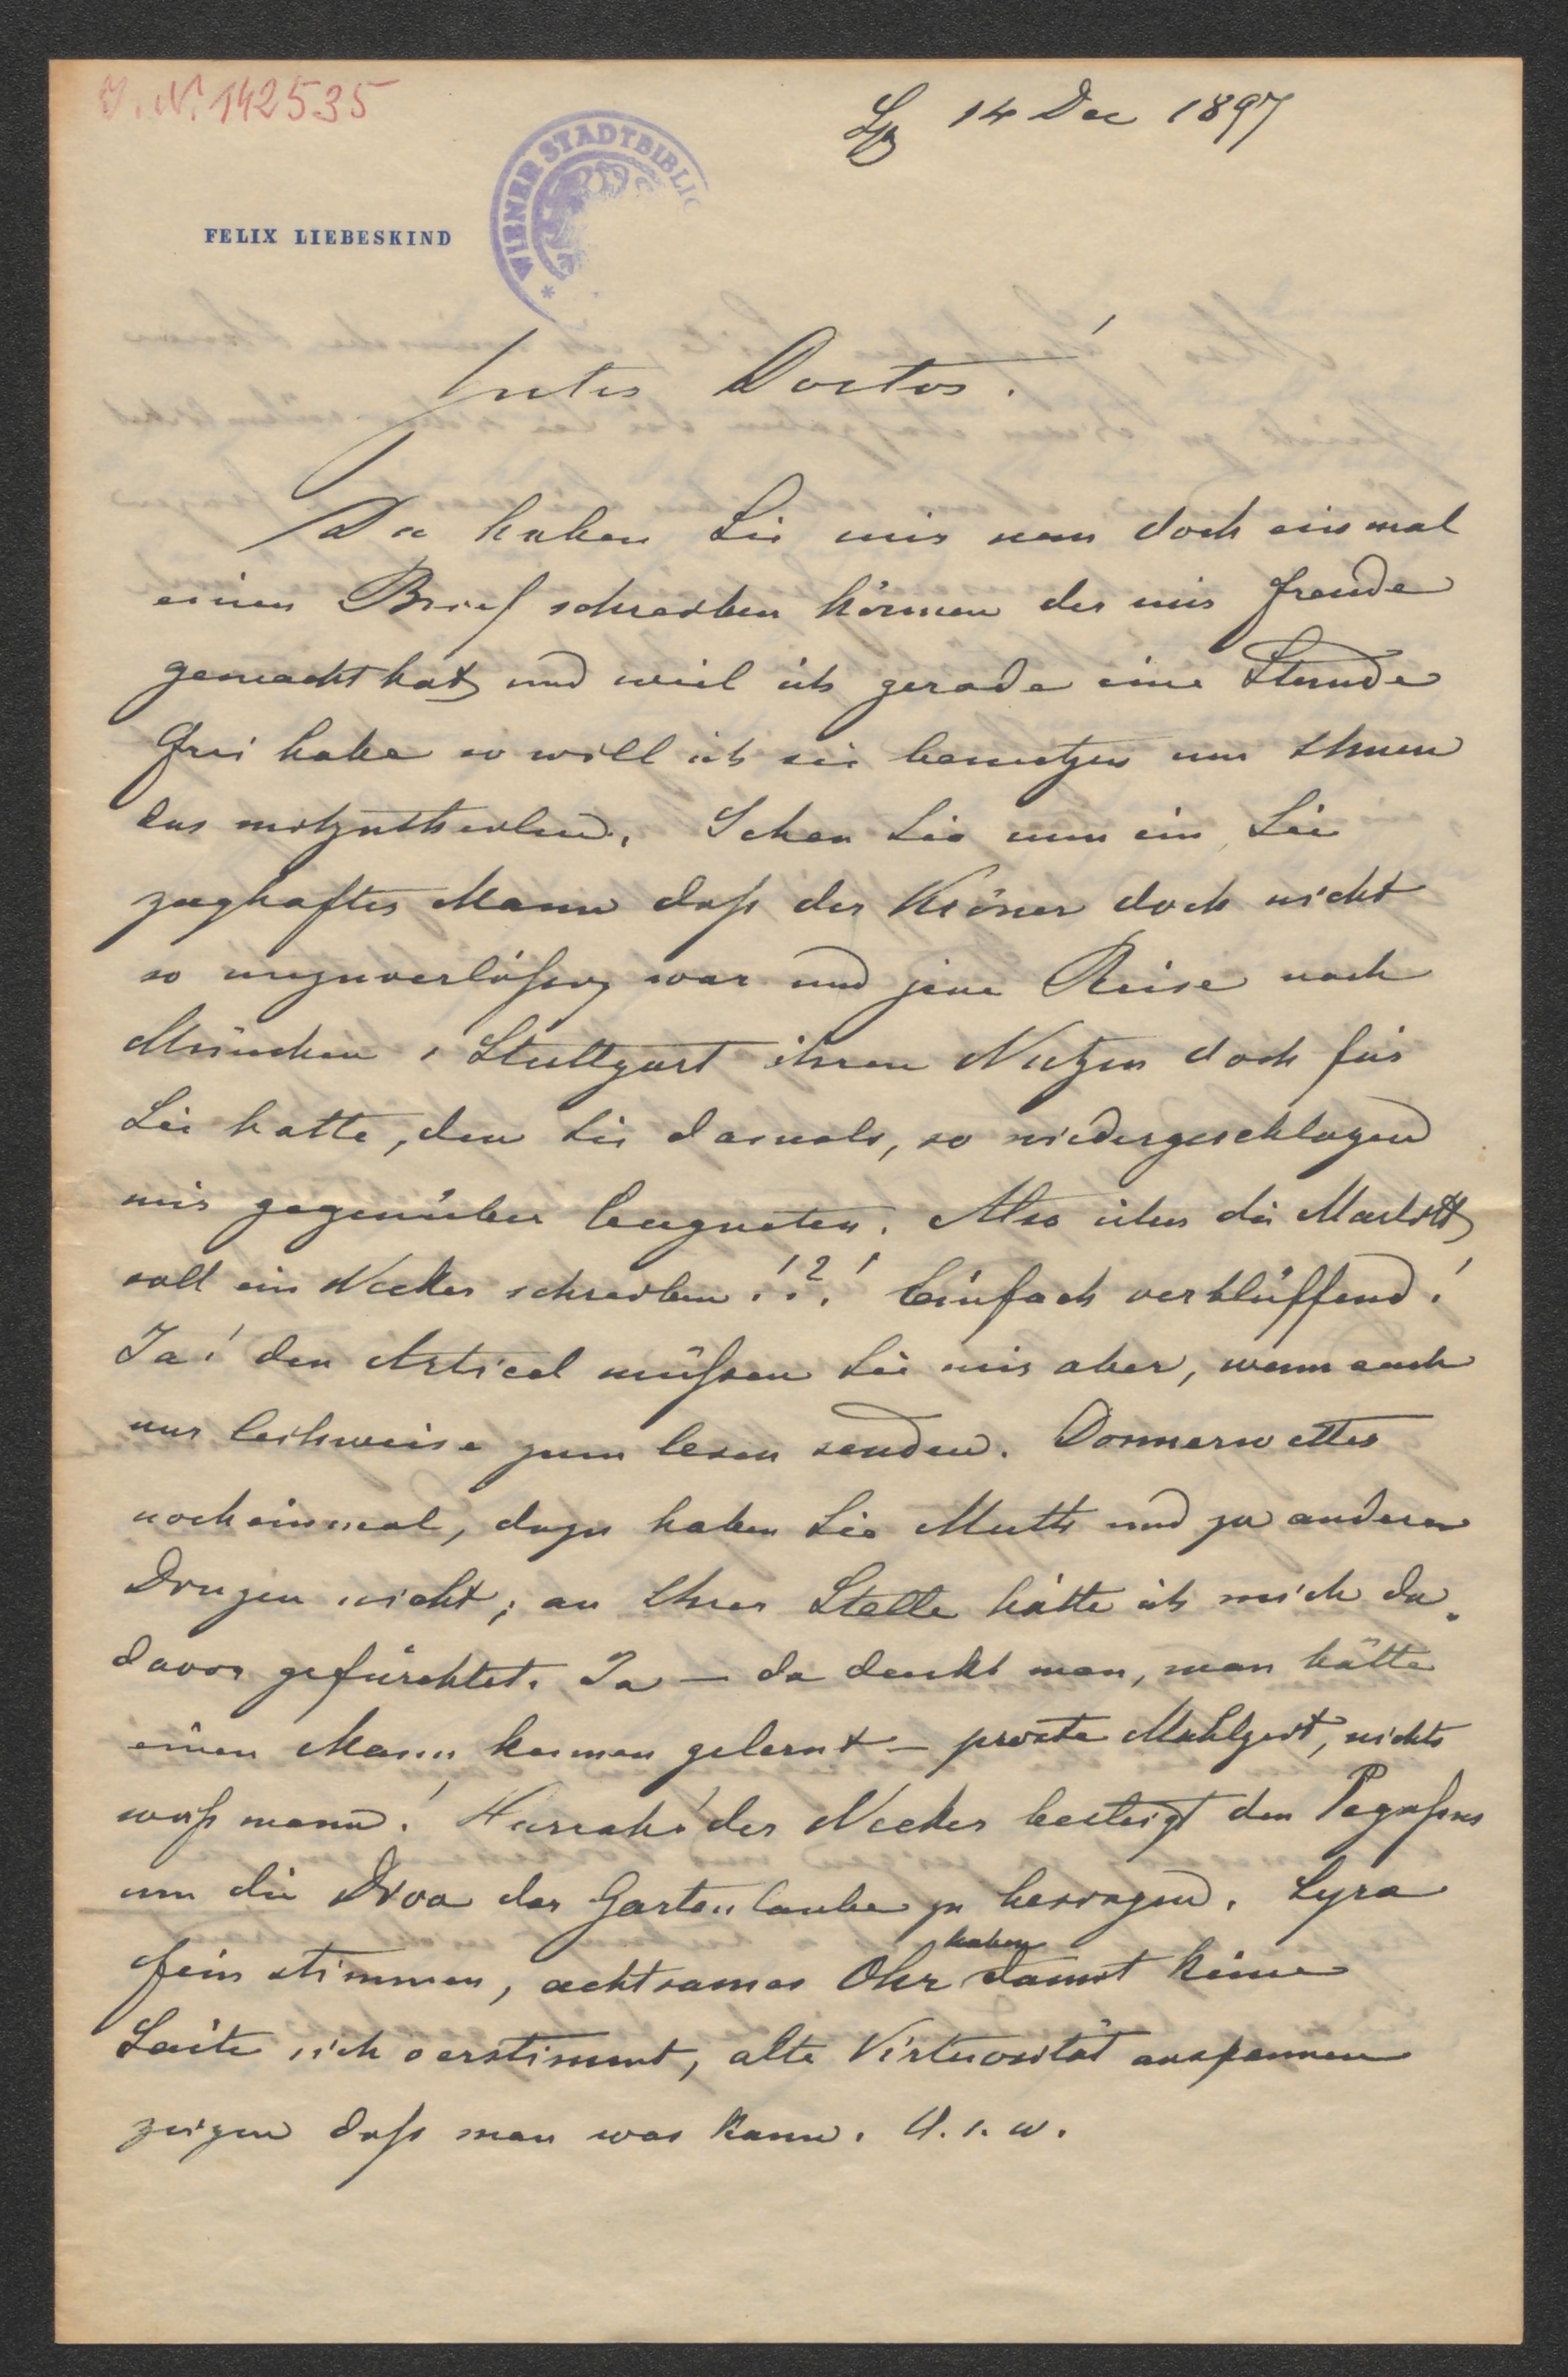 J. N. 142535
Lpz 14 Dec 1897
WIENER STADTBIBLIO
FELIX LIEBESKIND
Guter Doctor!
Da haben Sie mir nun doch einmal
einen Brief schreiben können der mir Freude
gemacht hat und weil ich gerade eine Stunde
frei habe so will ich sie benutzen um Ihnen
das mitzutheilen. Sehen Sie nun ein, Sie
zaghafter Mann daß der Kröner doch nicht
so unzuverläßig war und jene Reise nach
München, Stuttgart ihren Nutzen doch für
Sie hatte, den Sie damals, so niedergeschlagen
mir gegenüber leugneten. Also über die Marlitt
soll ein Necker schreiben!?! Einfach verblüffend!
Ja! den Articel müßen Sie mir aber, wenn auch
nur leihweise zum lesen senden. Donnerwetter
noch einmal, dazu haben Sie Muth und zu anderen
Dingen nicht; an Ihrer Stelle hätte ich mich da
davor gefürchtet. Ja — da denkt man, man hätte
einen Mann kennen gelernt — proste Mahlzeit, nichts
weiß mann! Hurrah! der Necker besteigt den Pegaßus
um die Diva der Gartenlaube zu besingen. Lyra
fein stimmen, achtsames Ohr haben damit keine
Saite sich verstimmt, alte Virtuosität anspannen
zeigen daß man was kann. U. s. w.